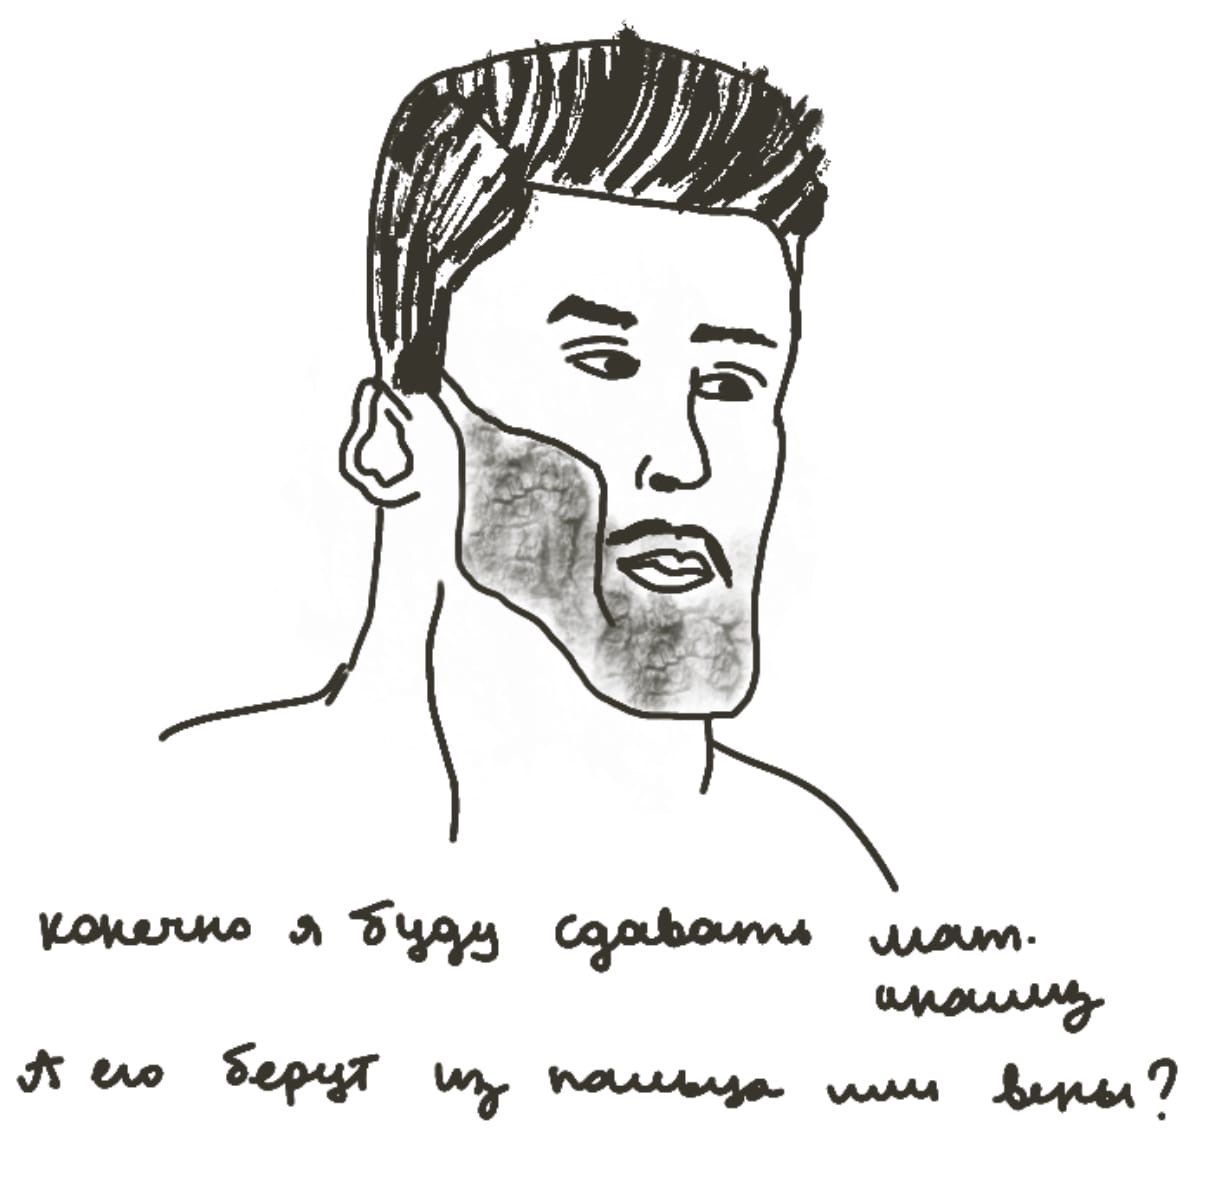 конечно я буду сдавать мат.
анализ
А его берут из пальца или вены?